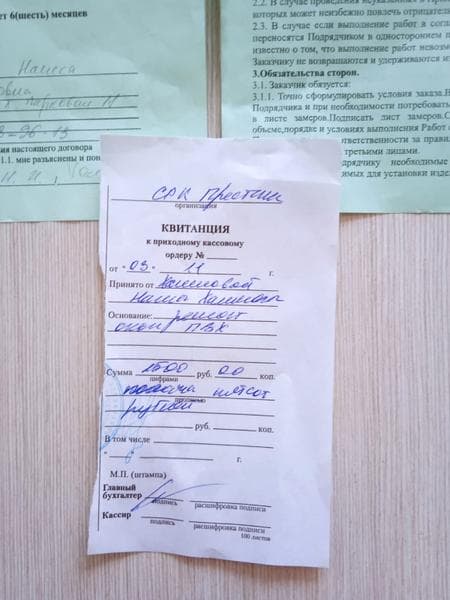 ет 6(шесть) месяцев
ия настоящего договора
1.1. мне разъяснены и пон
2.2. В случае проведения
которых может неизбежно повлечь отрицател
2.3. В случае если выполнение работ в согла
переносятся Подрядчиком в одностороннем п
известно о том, что выполнение работ невозм
Заказчику не возвращаются и удерживаются и
3.Обязательства сторон.
3.1. Заказчик обязуется:
3.1.1. Точно сформулировать условия заказа.В
Подрядчика и при необходимости потребовать
в листе замеров.Подписать лист замеров.С
объеме,порядке и условиях выполнения Работ
ответственности за прави
третьими лицами.
дрядчику необходимые
имых для установки изде
СРК Престиж
организация
КВИТАНЦИЯ
к приходному кассовому
ордеру №
от "03" 11 г.
Принято от
Основание: ремонт
окон ПВХ
Сумма 2500 руб. 00 коп.
цифрами
пятсот
прописью
рублей
руб. коп.
В том числе
" " г.
М.П. (штампа)
Главный
бухгалтер
подпись расшифровка подписи
Кассир
подпись расшифровка подписи
100 листов